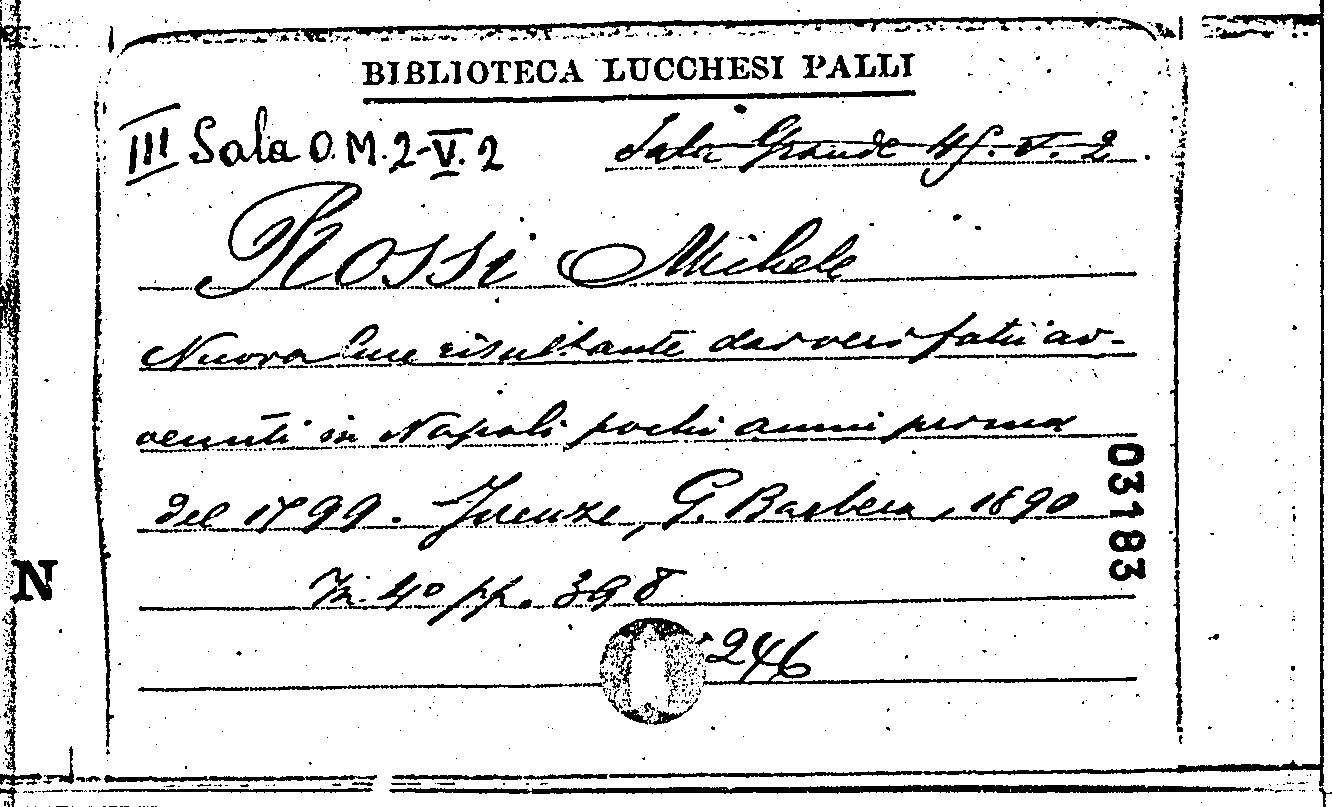 BIBLIOTECA LUCCHESI PALLI
III Sala O. M. 2-V. 2
Sala Grande 45. V. 2
Rossi Michele
Nuova luce risultante da veri fatti av-
venuti in Napoli pochi anni prima
del 1799. Firenze, G. Barbera, 1890
In 4º pp. 398
246
03183
N